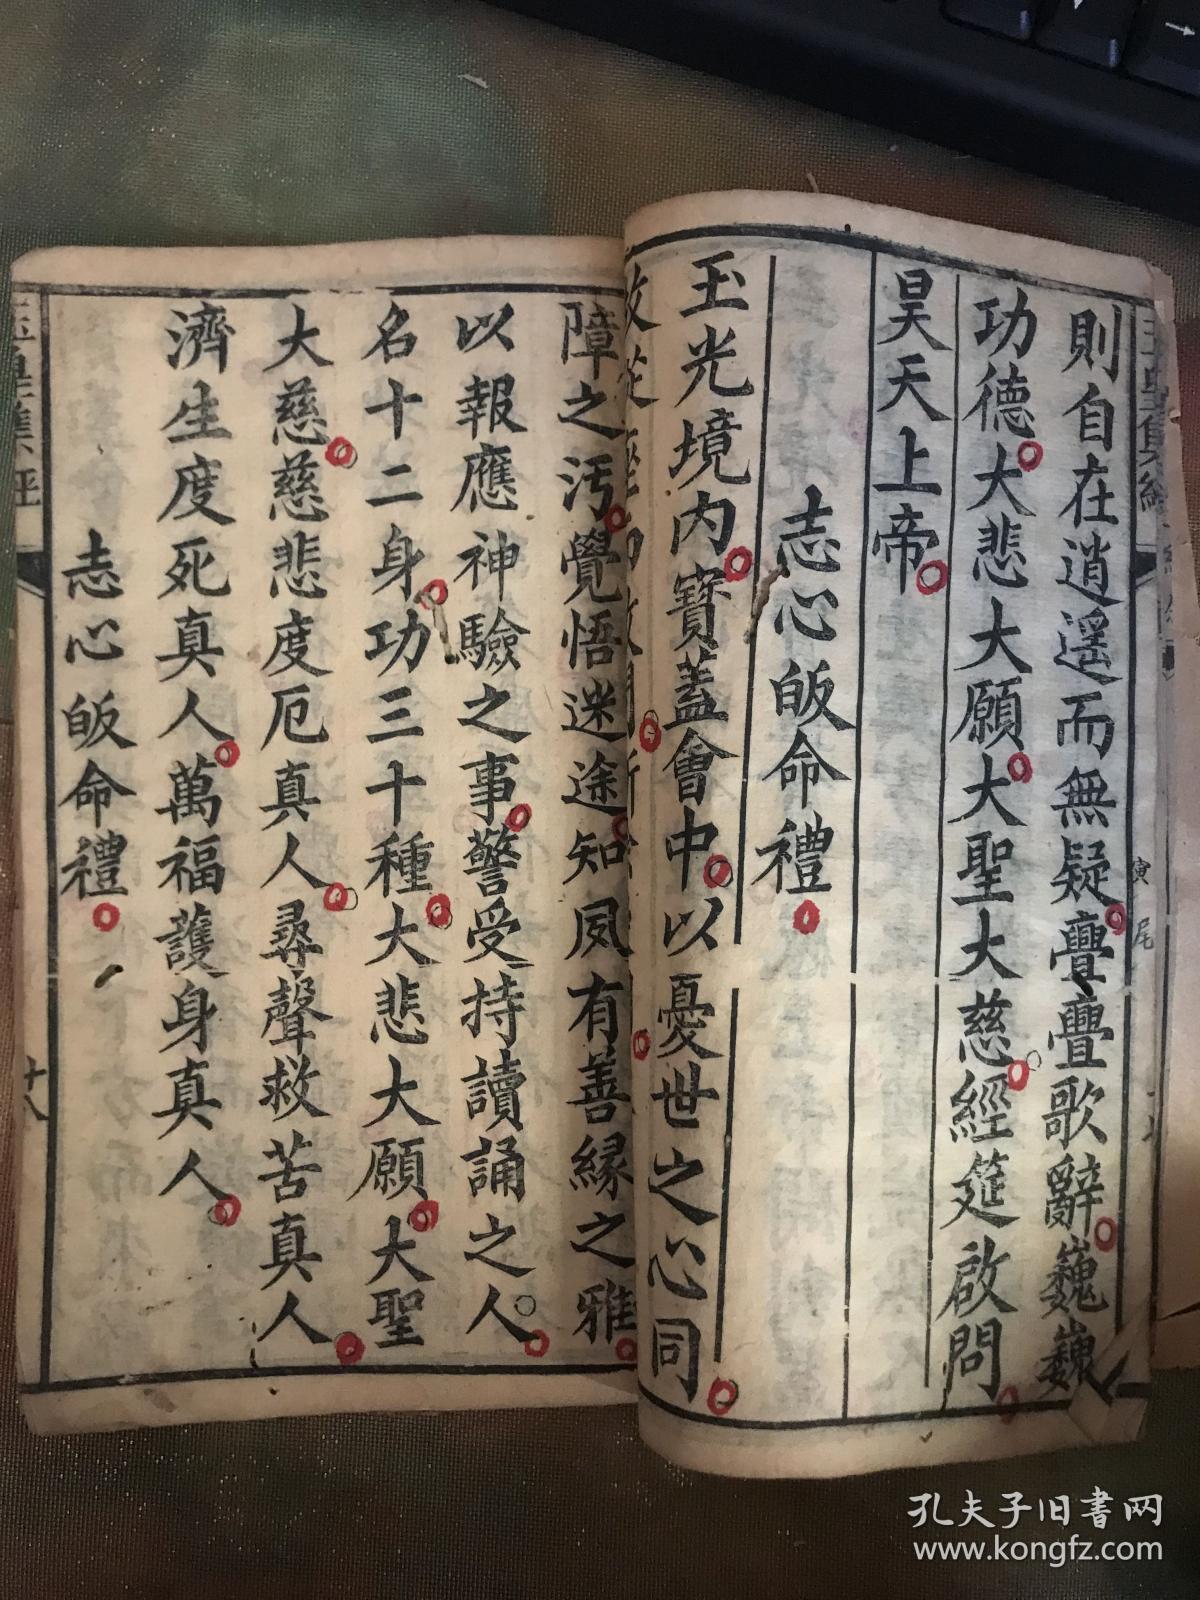 則自在逍遥而無疑疊疊歌辭巍巍
功德大悲大願大聖大慈經筵啟問
昊天上帝
志心皈命禮
玉光境内寳蓋會中以憂世之心同
障之汚覺悟迷途知夙有善縁之雅
以報應神驗之事警受持讀誦之人
名十二身功三十種大悲大願大聖
大慈慈悲度厄真人尋聲救苦真人
濟生度死真人萬福護身真人
志心皈命禮
十八
寅尾
孔夫子旧書网
www.kongfz.com